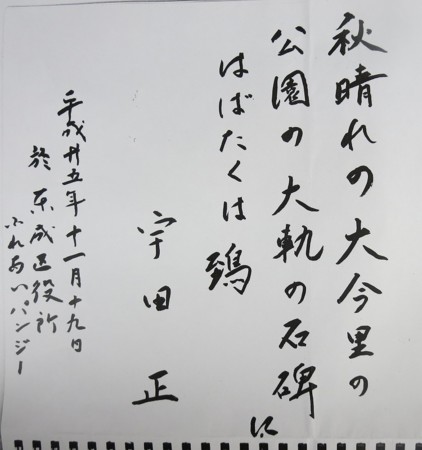 秋晴れの大今里の
公園の大軌の石碑に
はばたくは鵄
宇田正
平成廿五年十一月十九日
於東成区役所
ふれあいパンジー